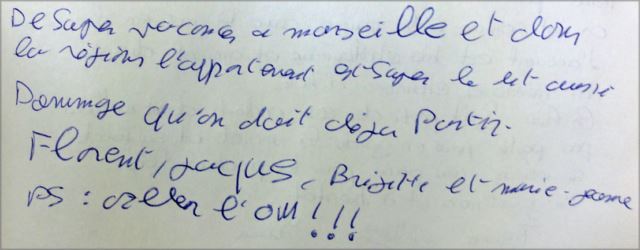 De Super vacances a marseille et dans
la région l'appartement est Super le lit aussi
Dommage qu'on doit déja Partir.
Florent, jacques, Brigitte et marie-jeanne
PS : allez l'OM !!!